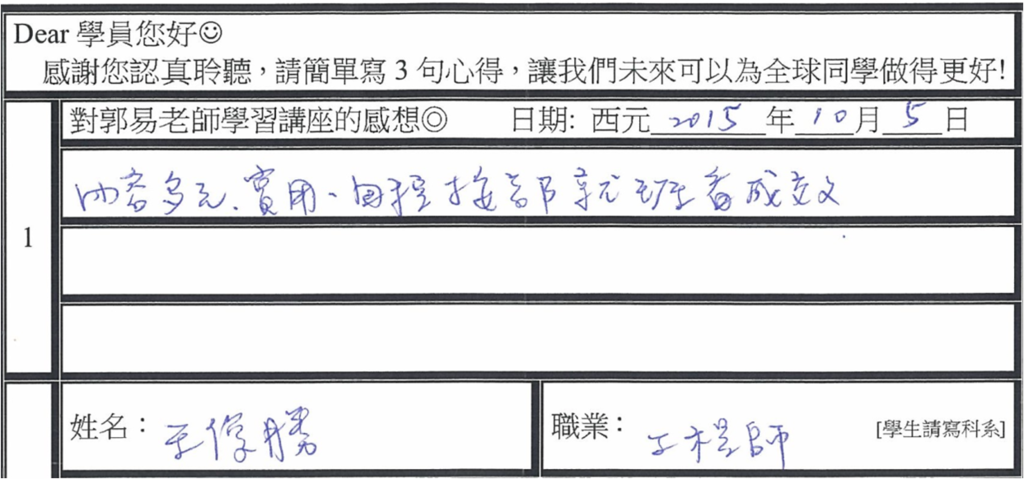 Dear 學員您好☺
感謝您認真聆聽，請簡單寫 3 句心得，讓我們未來可以為全球同學做得更好!
對郭易老師學習講座的感想◎ 日期: 西元 2015 年 10 月 5 日
內容多元、實用、
1
姓名： 王 勝
職業： 工程師 [學生請寫科系]